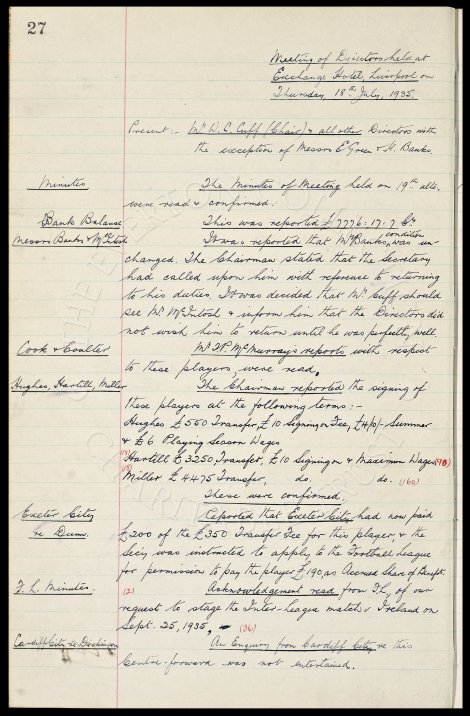 27
Meeting of Directors held at
Exchange Hotel, Liverpool on
Thursday, 18th July, 1935.
Present :- Mr W. C. Cuff (Chair) & all other Directors with
the exception of Messrs E. Green & H. Banks.
Minutes The Minutes of Meeting held on 19th ulto.
were read & confirmed.
Bank Balance This was reported £7776: 17. 7 Cr
Messrs Banks & McIntosh It was reported that Mr Banks, condition was un-
changed. The Chairman stated that the Secretary
had called upon him with reference to returning
to his duties. It was decided that Mr. Cuff should
see Mr. McIntosh & inform him that the Directors did
not wish him to return until he was perfectly well.
Cook & Coulter Mr. H. McMurray's reports with respect
to these players, were read.
Hughes, Hartill, Miller The Chairman reported the signing of
these players at the following terms:-
Hughes £550 Transfer, £10 Signing on Fee, £4/0/- Summer
& £6 Playing Season Wages
Hartill £3250 Transfer, £10 Signing on & Maximum Wages
Miller £4475 Transfer, do. do. (160)
These were confirmed.
Exeter City Reported that Exeter City had now paid
re Dunn. £200 of the £350 Transfer Fee for this player & the
Secy was instructed to apply to the Football League
for permission to pay the player £190, as Accrued Share of Benefit.
F. L. Minutes. (2) Acknowledgement read from F.L, of our
request to stage the Inter-league match v Ireland on
Sept. 25, 1935, (36)
Cardiff City re Dickinson An Enquiry from Cardiff City re this
Centre-forward was not entertained.